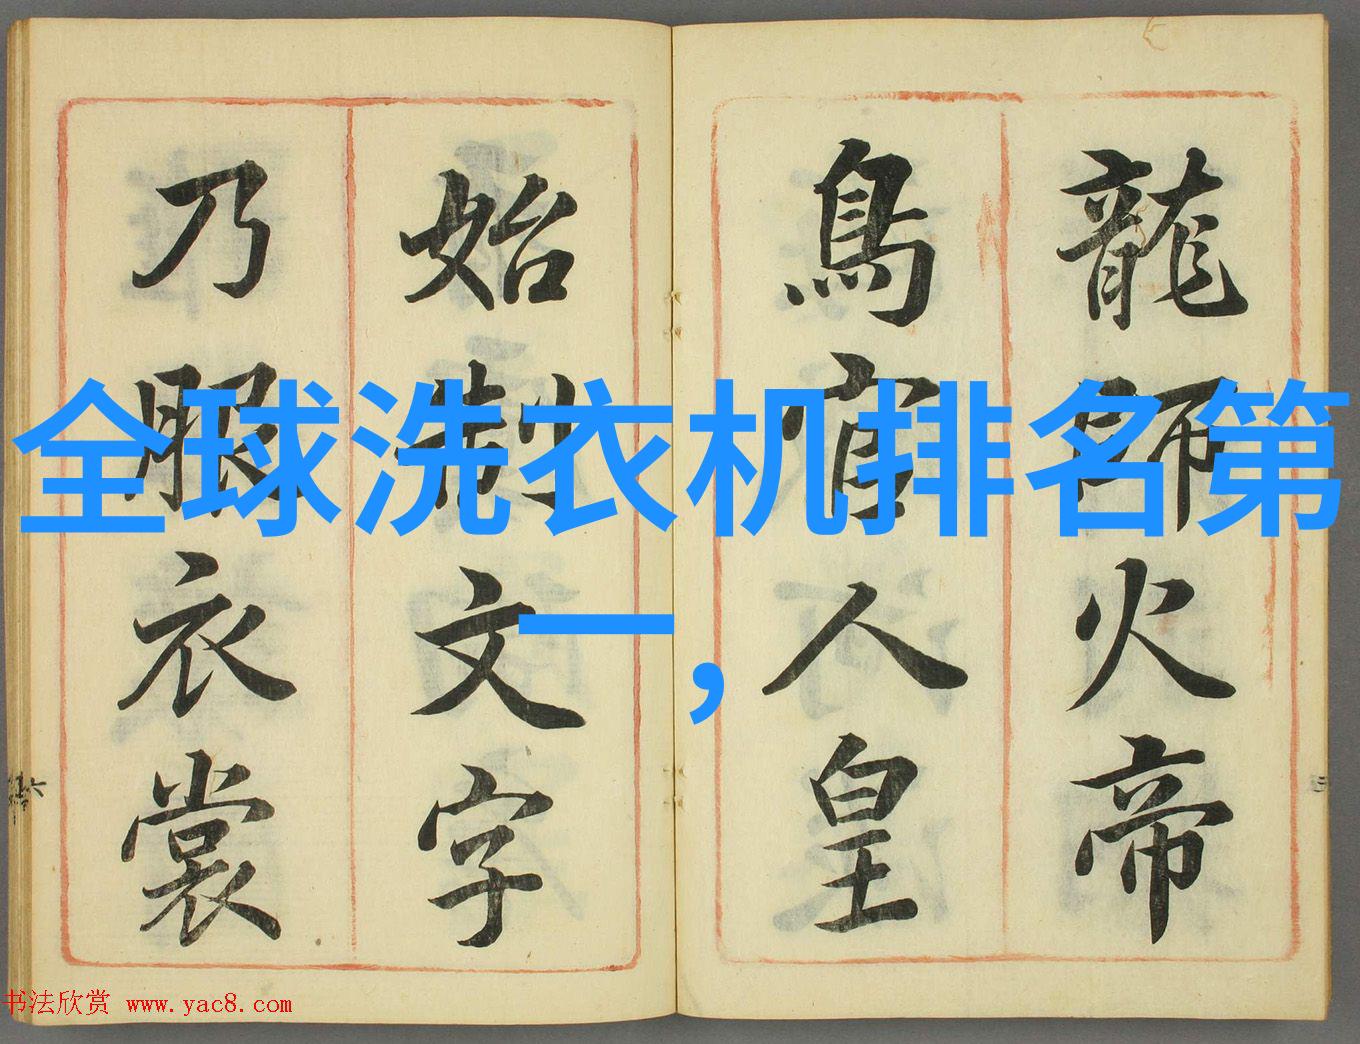 龍師火帝
鳥官人皇
始制文字
乃服衣裳
全球洗衣机排名第
一，
书法欣赏 www.yac8.com